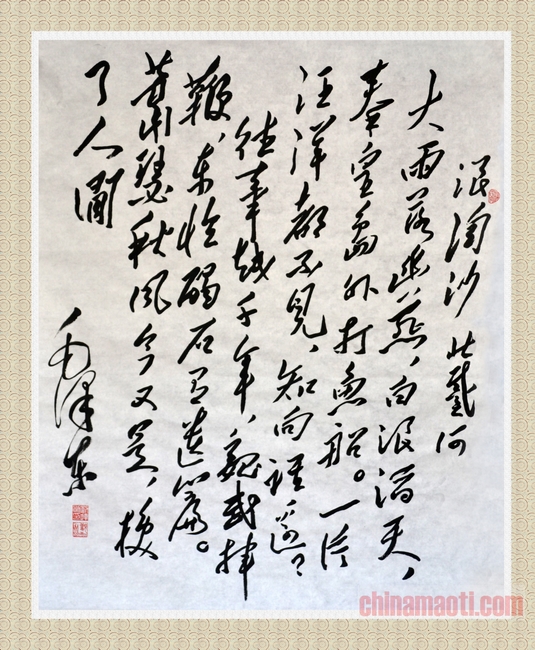 浪淘沙 北戴河
大雨落幽燕,白浪滔天,
秦皇岛外打鱼船。一片
汪洋都不见,知向谁边?
往事越千年,魏武挥
鞭,东临碣石有遗篇。
萧瑟秋风今又是,换
了人间
毛泽东
chinamaoti.com